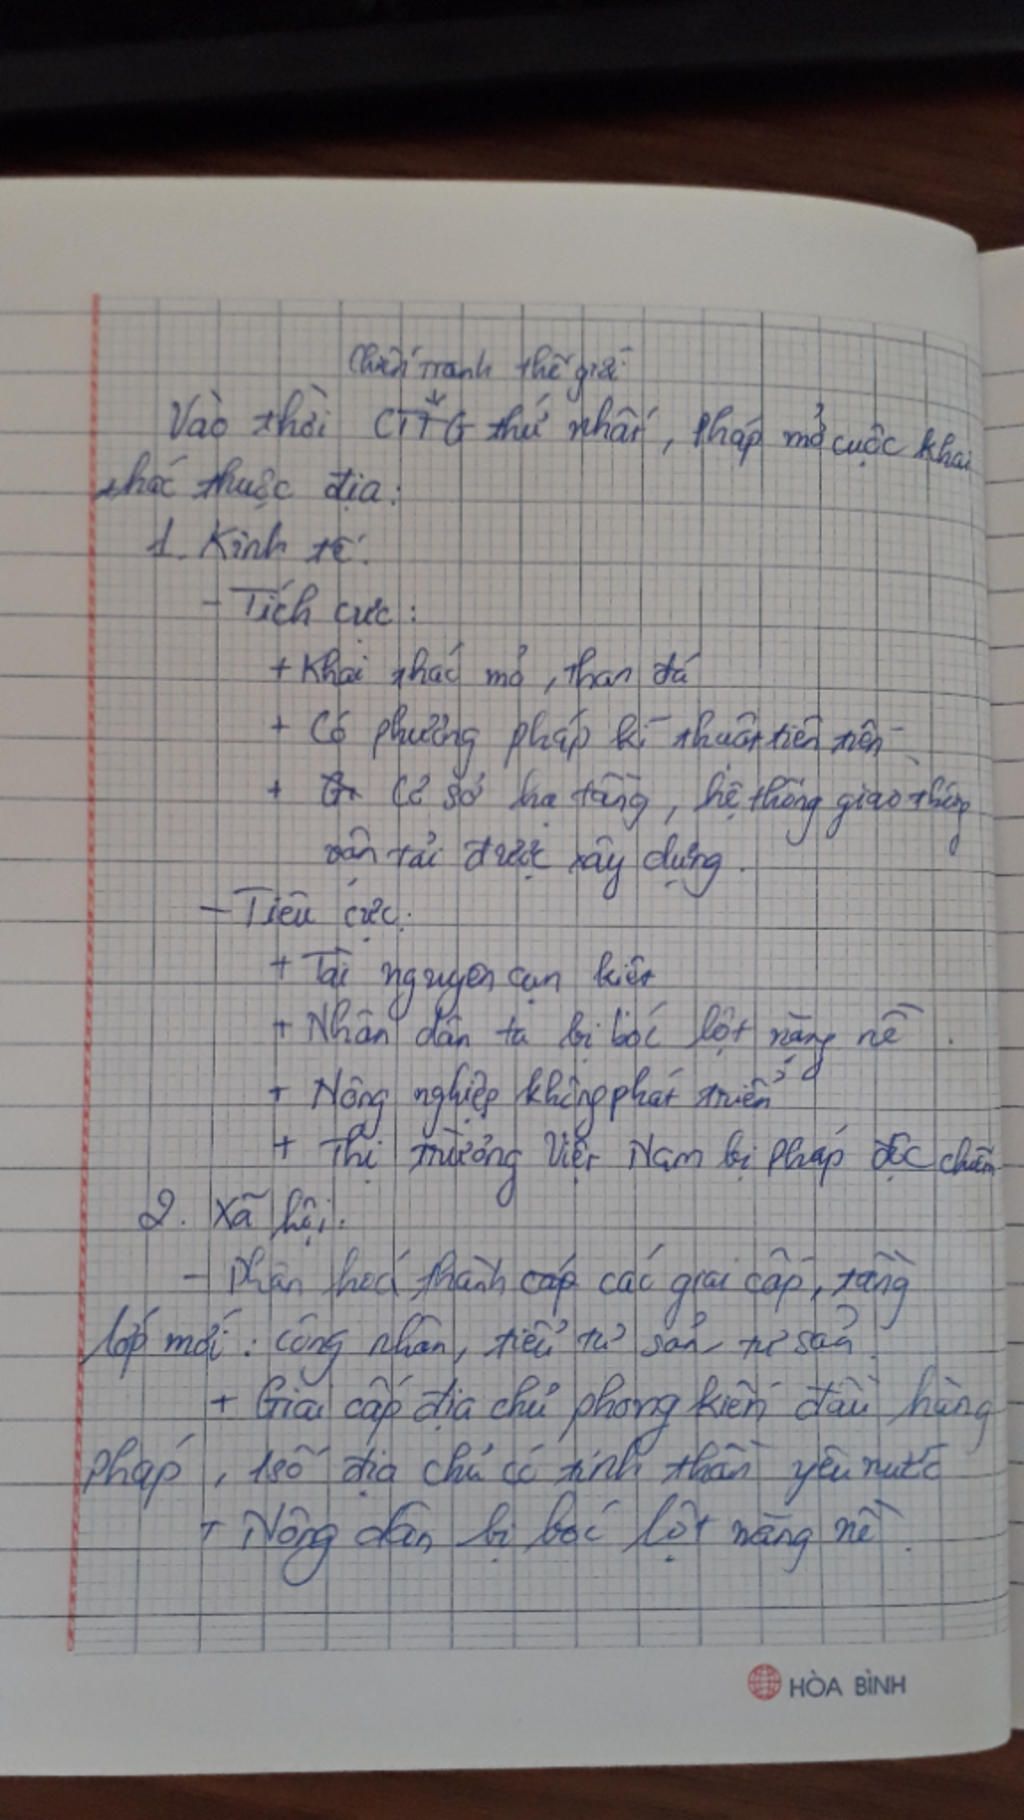 Chiến tranh thế giới
Vào thời CTTG thứ nhất, Pháp mở cuộc khai
thác thuộc địa:
1. Kinh tế.
- Tích cực:
+ Khai thác mỏ, than đá
+ Có phương pháp kĩ thuật tiên tiến
+ Cơ sở hạ tầng, hệ thống giao thông
vận tải được xây dựng.
- Tiêu cực:
+ Tài nguyên cạn kiệt
+ Nhân dân ta bị bóc lột nặng nề.
+ Nông nghiệp không phát triển
+ Thị trường Việt Nam bị Pháp độc chiếm
2. Xã hội.
- Phân hoá thành cấp các giai cấp, tầng
lớp mới: công nhân, tiểu tư sản, tư sản.
+ Giai cấp địa chủ phong kiến đầu hàng
Pháp, 1 số địa chủ có tinh thần yêu nước
+ Nông dân bị bóc lột nặng nề.
HÒA BÌNH